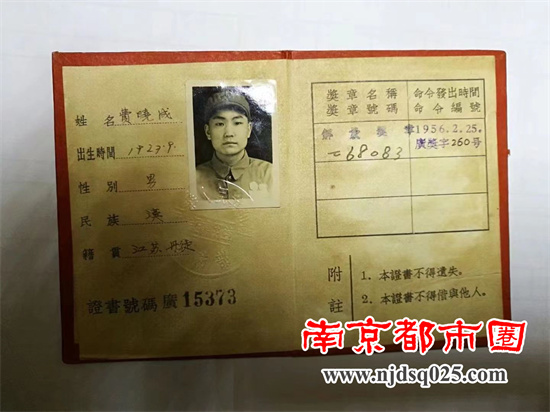 姓名 費曉成
出生時間 1923.9.
性別 男
民族 漢
籍貫 江苏 丹
證書號碼 廣 15373
獎章名稱 命令發出時間
獎章號碼 命令編號
解放獎章 1956.2.25.
68083 廣獎字260号
附註
1. 本證書不得遺失。
2. 本證書不得借與他人。
南京都市圈
www.njdsq025.com